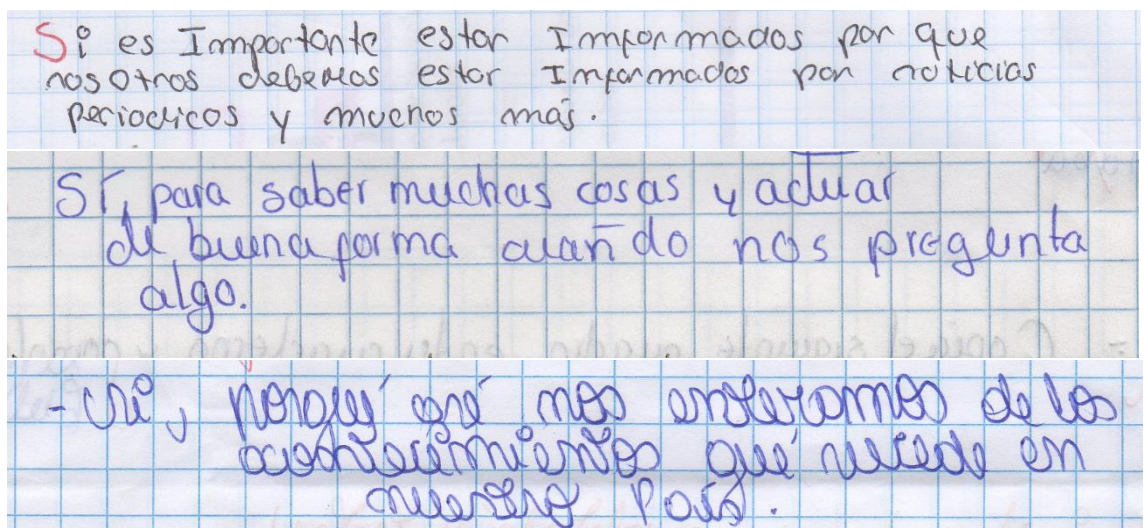 Si es Importante estar Informados por que
nosotros debemos estar Informados por noticias
periodicos y muchos más.
SÍ, para saber muchas cosas y actuar
de buena forma cuando nos pregunta
algo.
-Si, porque así nos enteramos de los
acontecimientos que sucede en
nuestro País.